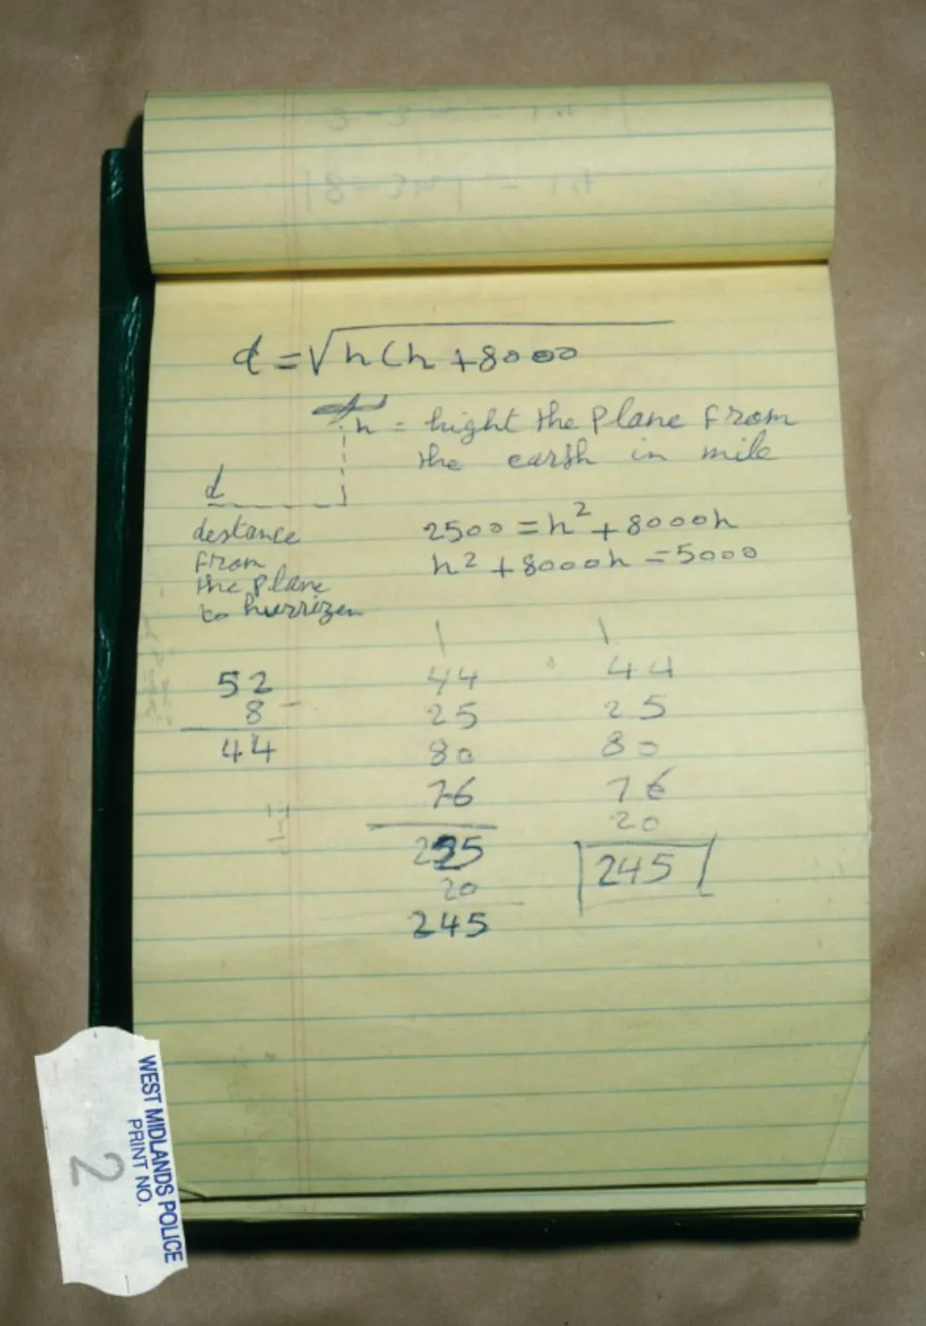 d = √h(h + 8000
h = hight the Plane From
the earth in mile
d
destance
From
the plane
to hurrizen
2500 = h² + 8000h
h² + 8000h = 5000
52
8 -
44
44
25
80
76
20
245
44
25
80
76
20
245
WEST MIDLANDS POLICE
PRINT NO.
2